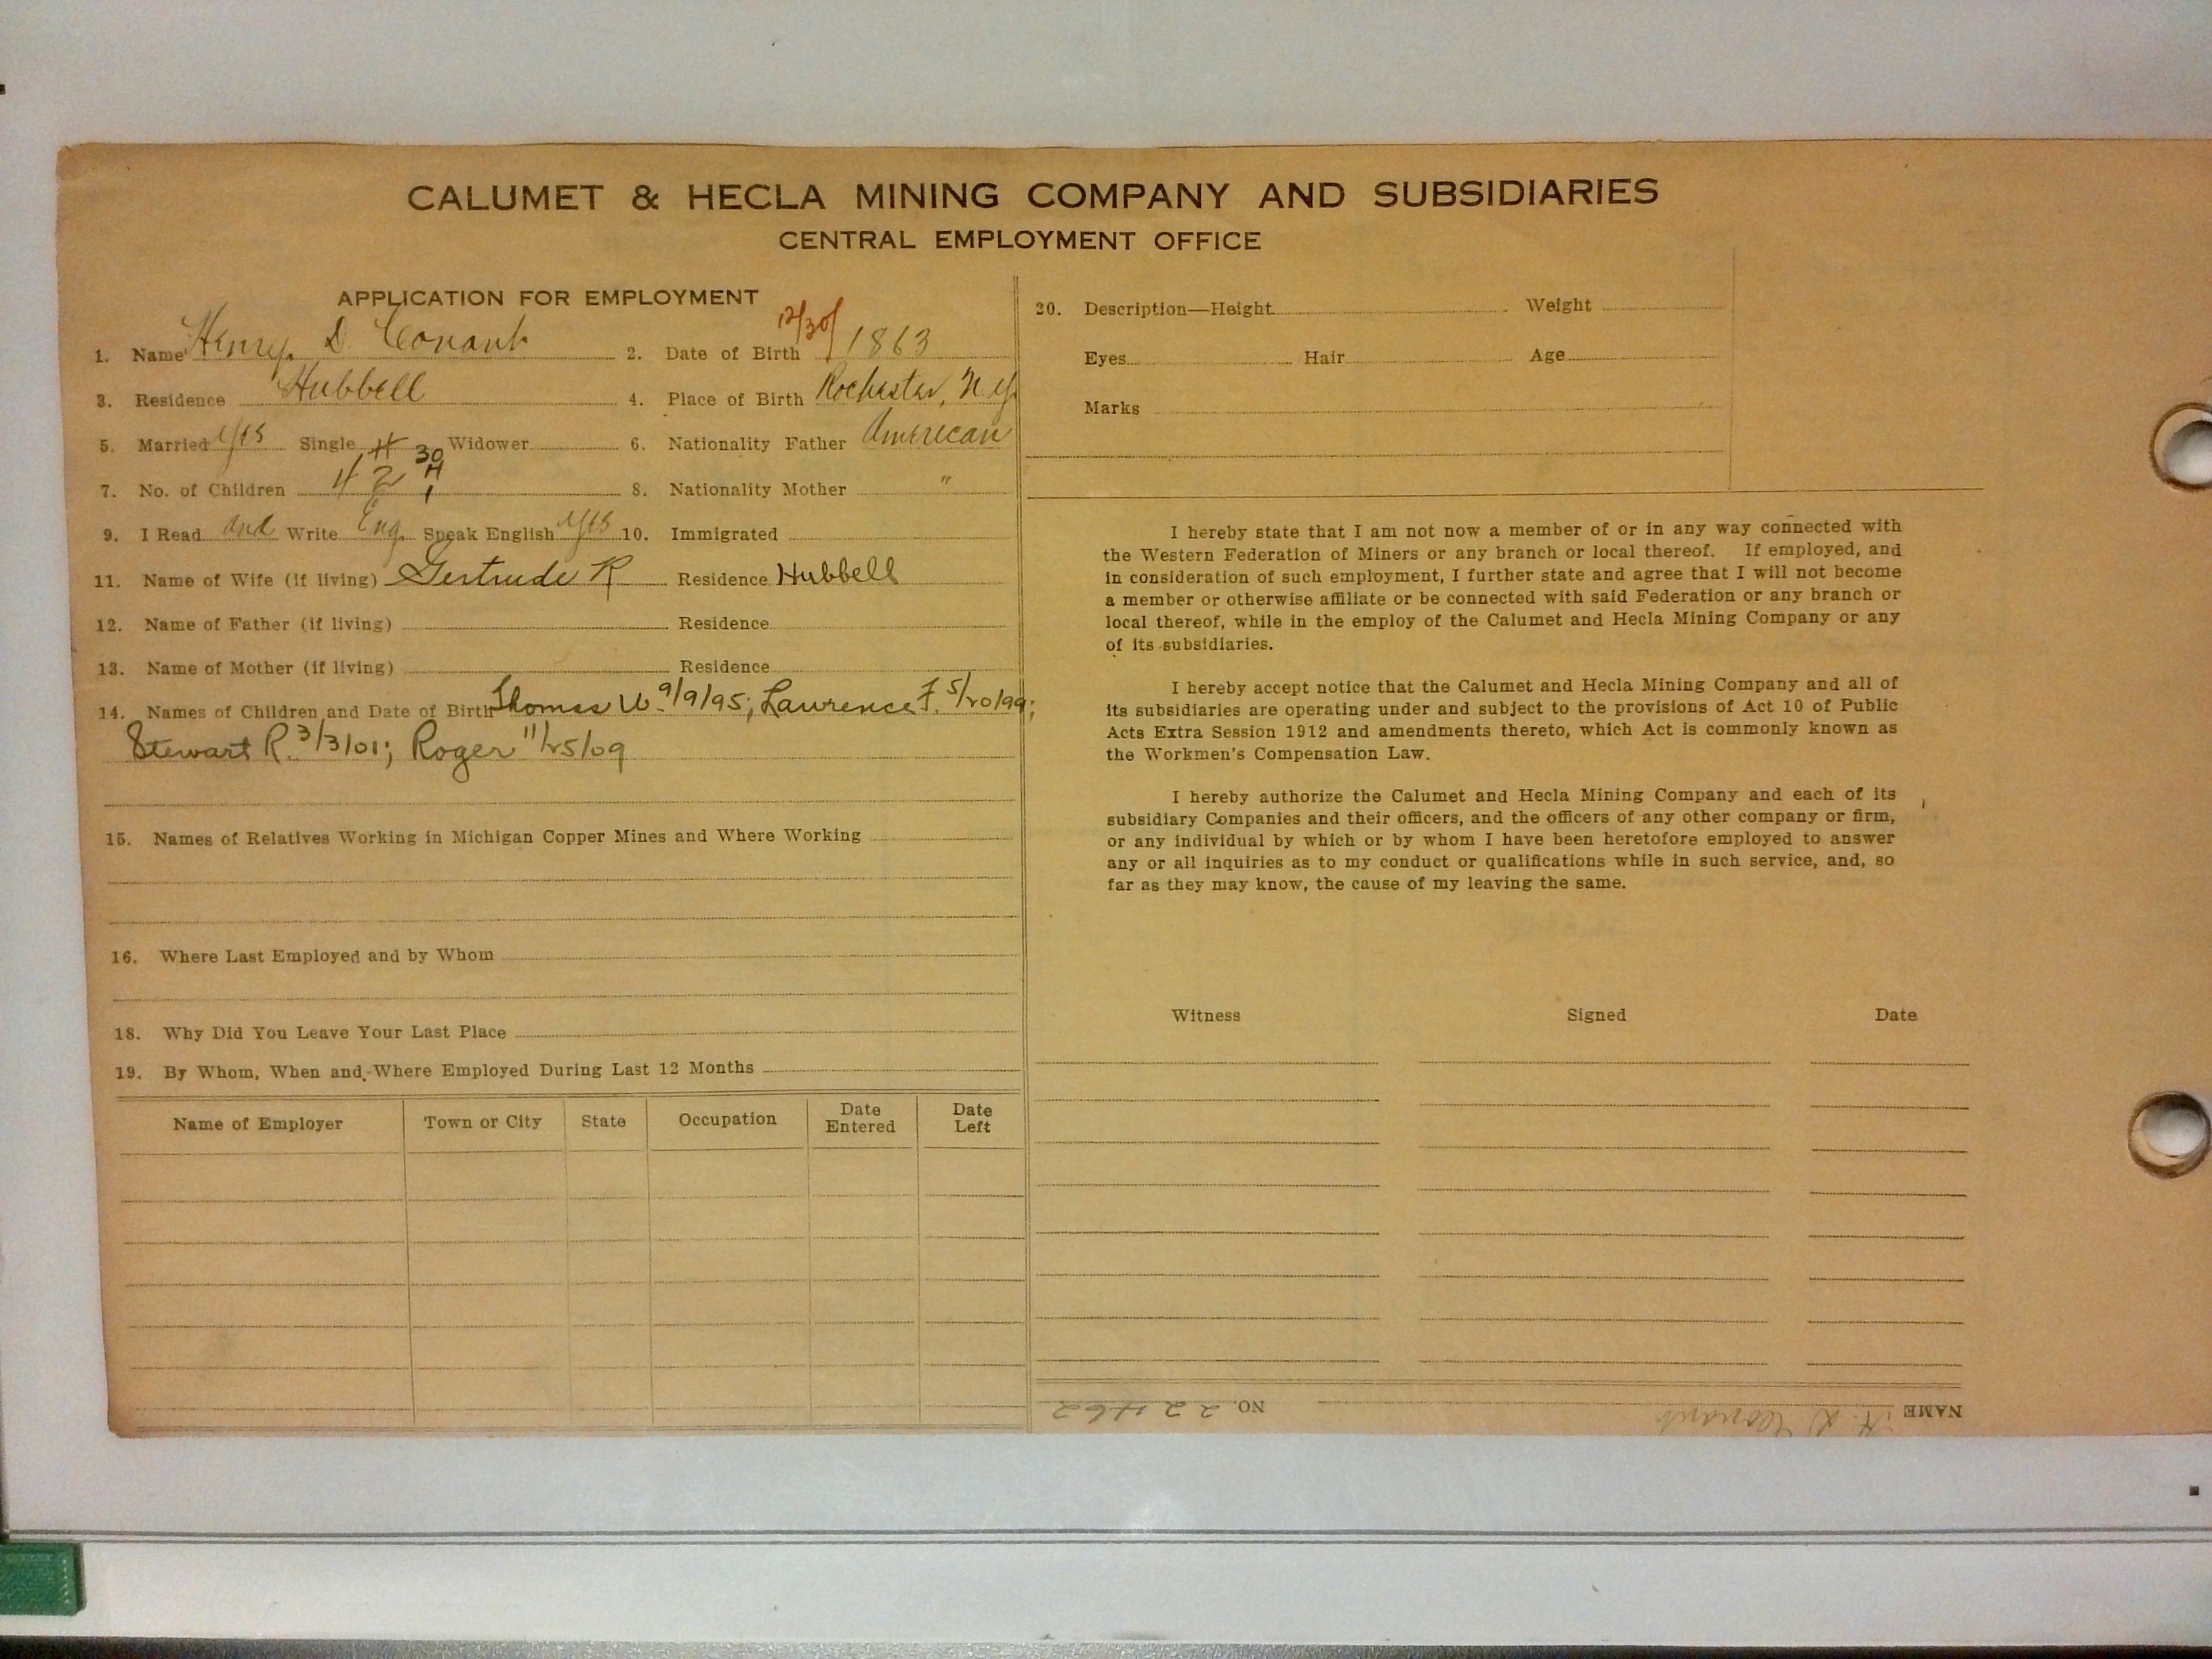 CALUMET & HECLA MINING COMPANY AND SUBSIDIARIES
CENTRAL EMPLOYMENT OFFICE
APPLICATION FOR EMPLOYMENT
1. Name Henry D. Conant 2. Date of Birth 12/30/ 1863
3. Residence Hubbell 4. Place of Birth Rochester, N.Y.
5. Married Yes Single Widower 6. Nationality Father American
7. No. of Children 8. Nationality Mother "
9. I Read and Write Eng. Speak English Yes 10. Immigrated
11. Name of Wife (if living) Gertrude R Residence Hubbell
12. Name of Father (if living) Residence
13. Name of Mother (if living) Residence
14. Names of Children and Date of Birth Thomas W. 9/9/95; Lawrence F. 5/20/99;
Stewart R. 3/3/01; Roger 11/25/09
15. Names of Relatives Working in Michigan Copper Mines and Where Working
16. Where Last Employed and by Whom
18. Why Did You Leave Your Last Place
19. By Whom, When and Where Employed During Last 12 Months
Name of Employer Town or City State Occupation Date Entered Date Left
20. Description—Height Weight
Eyes Hair Age
Marks
I hereby state that I am not now a member of or in any way connected with
the Western Federation of Miners or any branch or local thereof. If employed, and
in consideration of such employment, I further state and agree that I will not become
a member or otherwise affiliate or be connected with said Federation or any branch or
local thereof, while in the employ of the Calumet and Hecla Mining Company or any
of its subsidiaries.
I hereby accept notice that the Calumet and Hecla Mining Company and all of
its subsidiaries are operating under and subject to the provisions of Act 10 of Public
Acts Extra Session 1912 and amendments thereto, which Act is commonly known as
the Workmen's Compensation Law.
I hereby authorize the Calumet and Hecla Mining Company and each of its
subsidiary Companies and their officers, and the officers of any other company or firm,
or any individual by which or by whom I have been heretofore employed to answer
any or all inquiries as to my conduct or qualifications while in such service, and, so
far as they may know, the cause of my leaving the same.
Witness Signed Date
NAME H. D. Conant NO. 22462